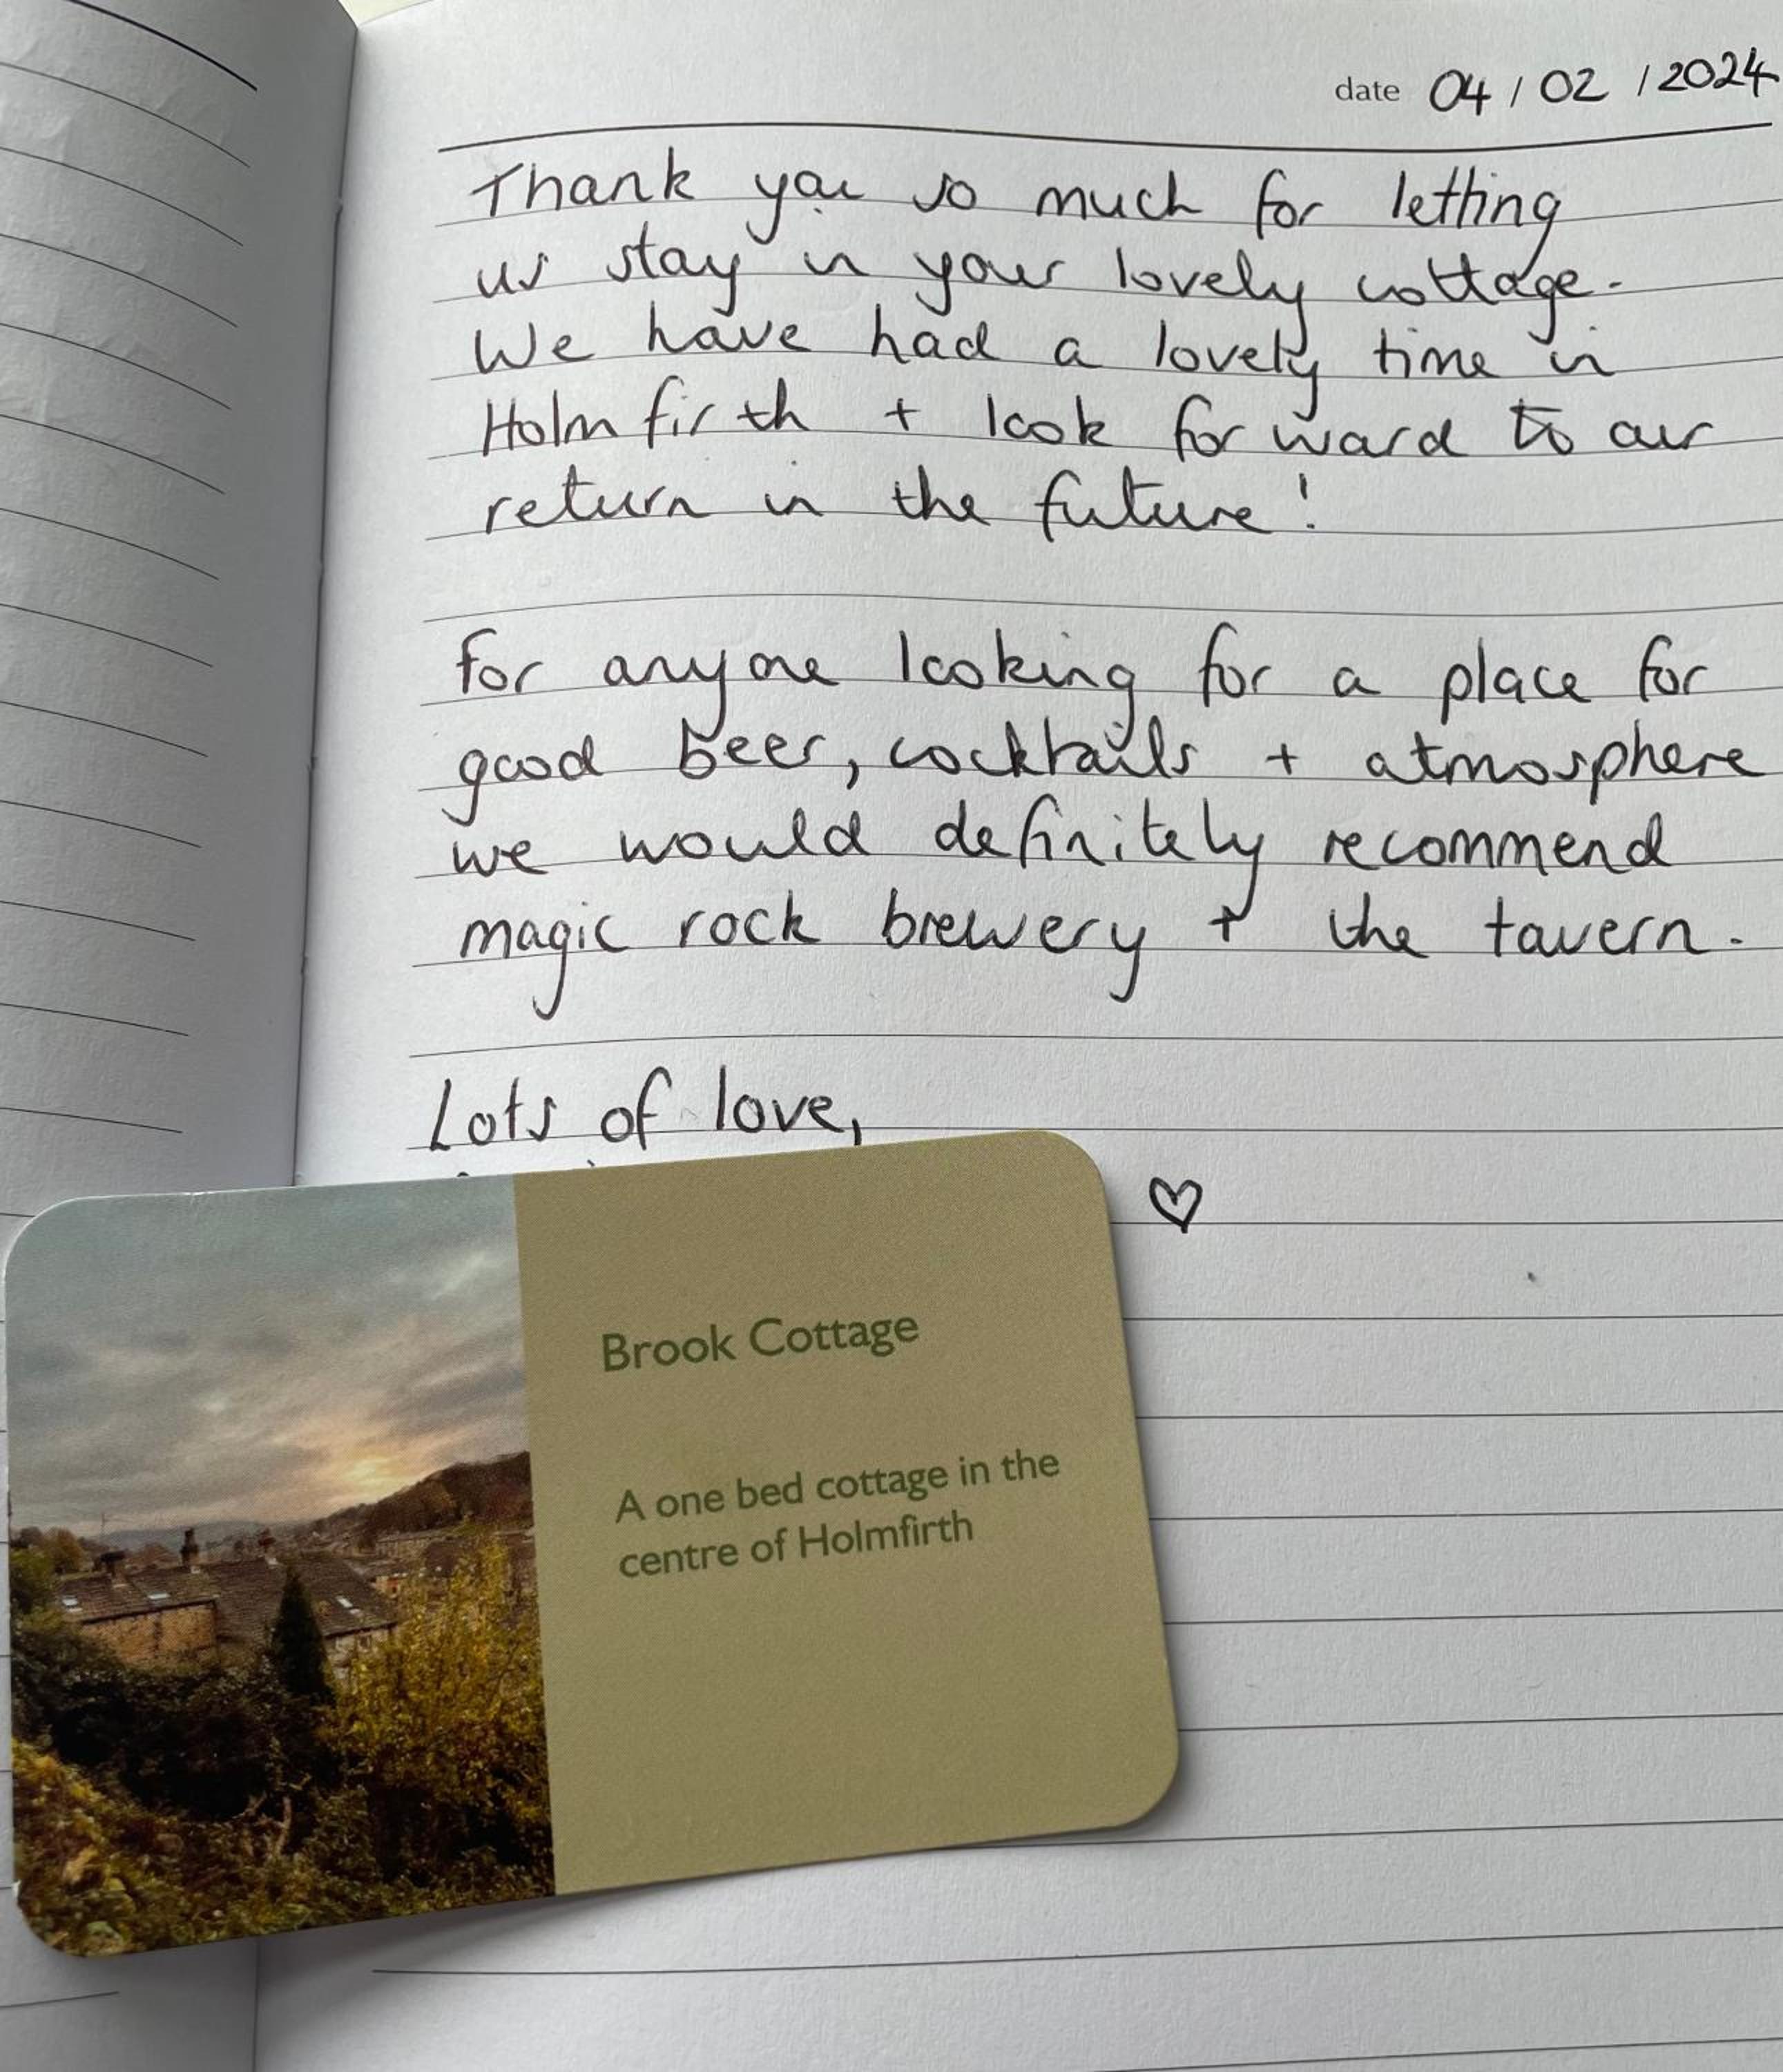 date 04/02/2024
Thank you so much for letting
us stay in your lovely cottage.
We have had a lovely time in
Holmfirth + look forward to our
return in the future!
for anyone looking for a place for
good beer, cocktails + atmosphere
we would definitely recommend
magic rock brewery + the tavern.
Lots of love,
♡
Brook Cottage
A one bed cottage in the
centre of Holmfirth